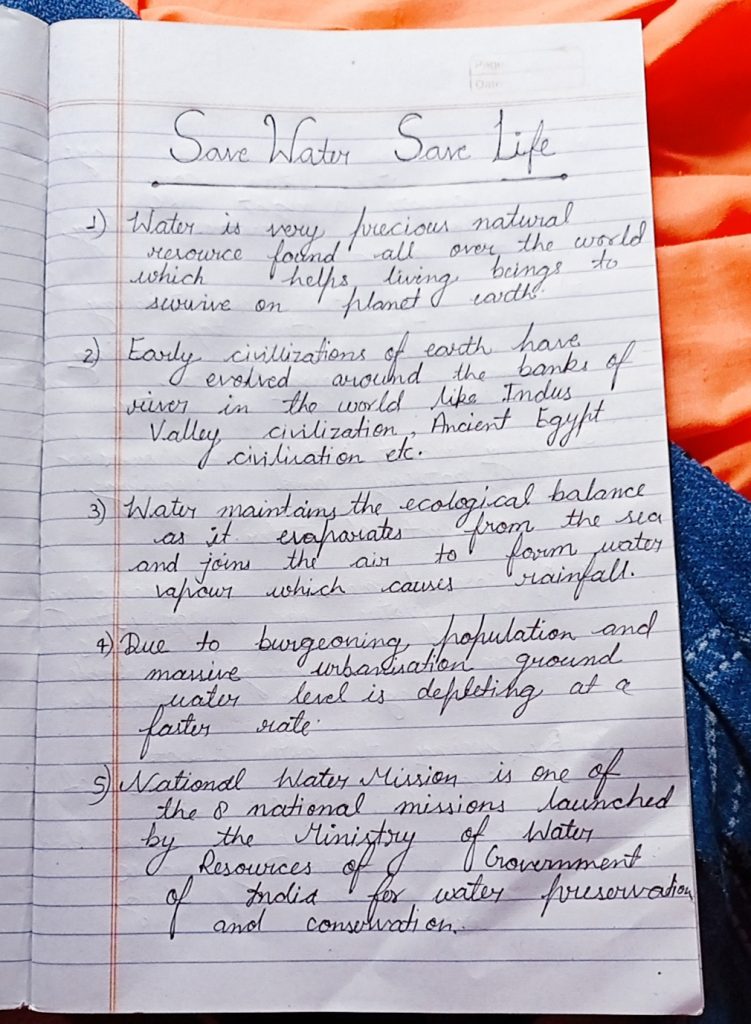 Page
Date
Save Water Save Life
1) Water is very precious natural
resource found all over the world
which helps living beings to
survive on planet earth.
2) Early civillizations of earth have
evolved around the banks of
river in the world like Indus
Valley civilization, Ancient Egypt
civilization etc.
3) Water maintains the ecological balance
as it evaporates from the sea
and joins the air to form water
vapour which causes rainfall.
4) Due to burgeoning population and
massive urbanisation ground
water level is depleting at a
faster rate.
5) National Water Mission is one of
the 8 national missions launched
by the Ministry of Water
Resources of Government
of India for water preservation
and conservation.